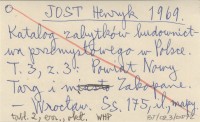 JOST Henryk 1969.
Katalog zabytków budownict-
wa przemysłowego w Polsce.
T. 3, z. 3: Powiat Nowy
Targ i m. Zakopane.
- Wrocław. Ss. 175, il., mapy.
tabl. 2, err., okł. WHP